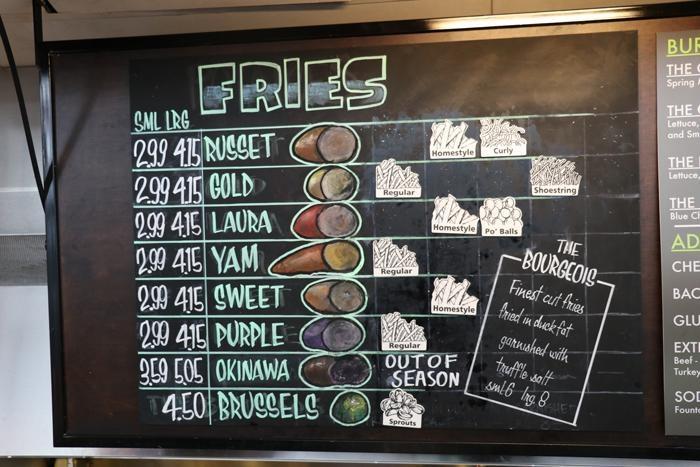 FRIES
SML LRG
2.99 4.15 RUSSET Homestyle Curly
2.99 4.15 GOLD Regular Shoestring
2.99 4.15 LAURA Homestyle Po' Balls
2.99 4.15 YAM Regular
2.99 4.15 SWEET Homestyle
2.99 4.15 PURPLE Regular
3.59 5.05 OKINAWA OUT OF
SEASON
4.50 BRUSSELS Sprouts
THE
BOURGEOIS
Finest cut fries
fried in duck fat
garnished with
truffle salt
sml 6 lrg. 8
BUR
THE
Spring
THE
Lettuce,
and Sm
THE
Lettuce,
THE
Blue Ch
AD
CHE
BAC
GLU
EXT
Beef -
Turkey
SOD
Founta